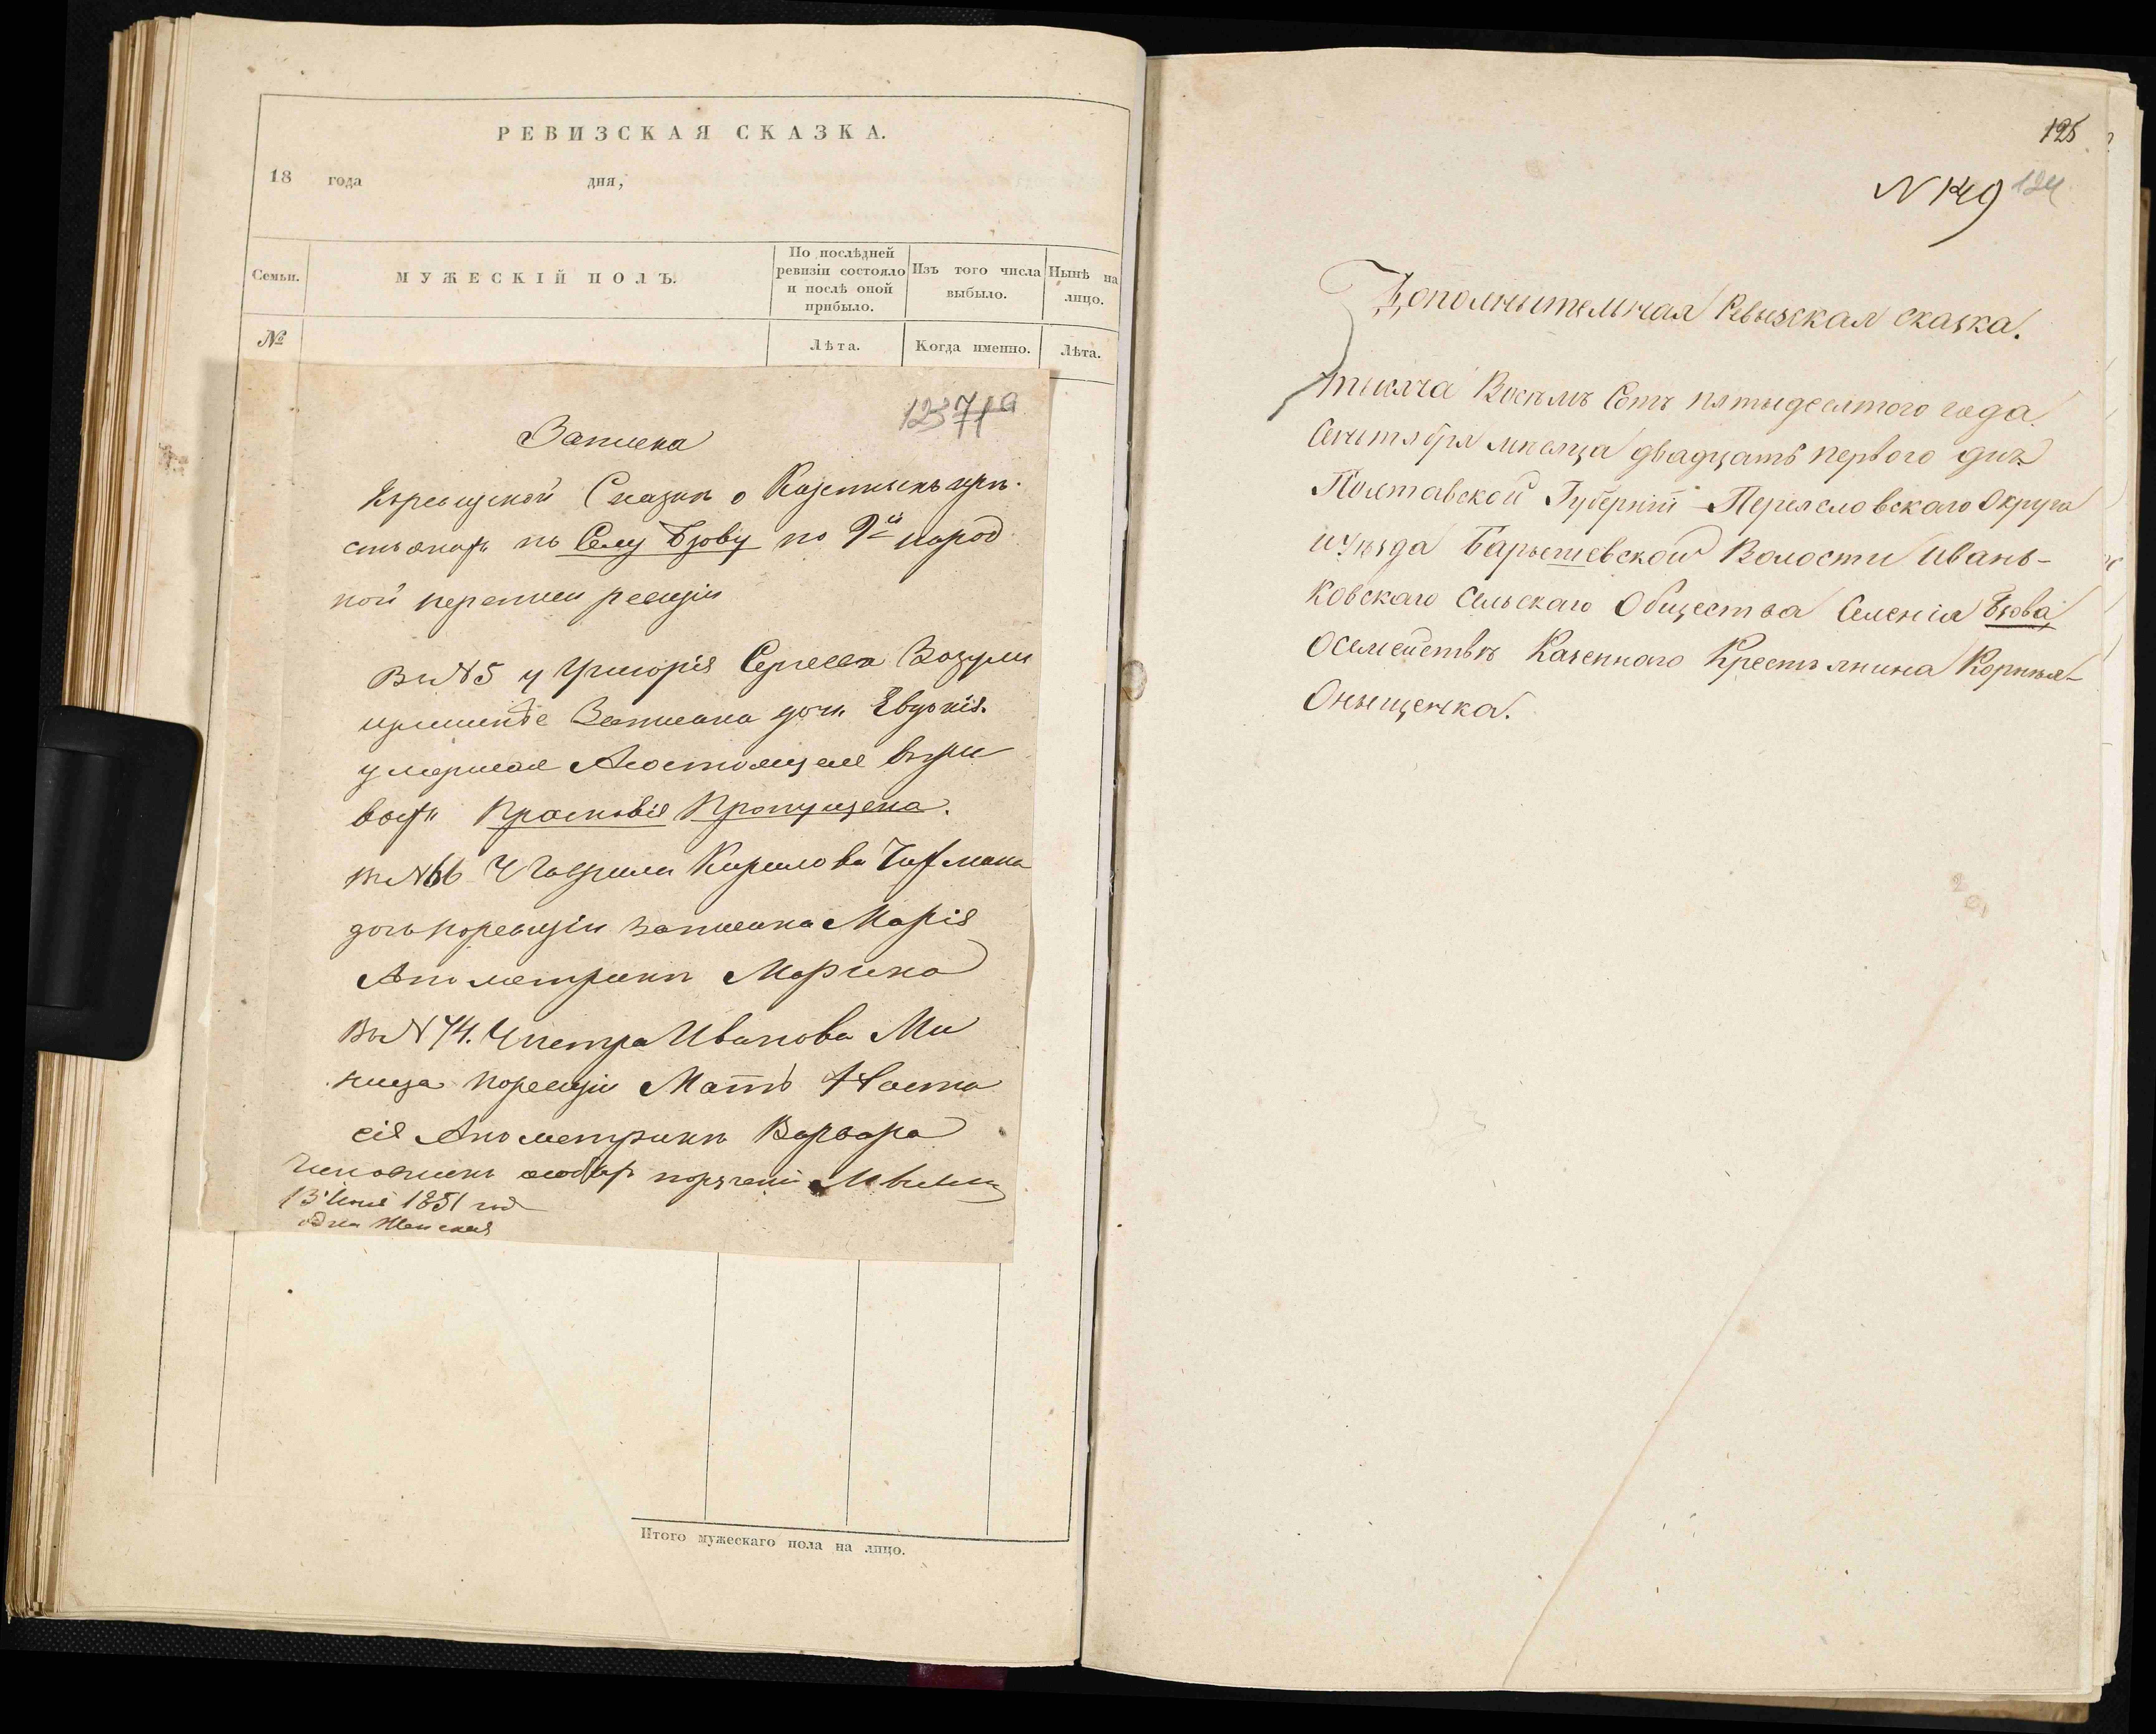 РЕВИЗСКАЯ СКАЗКА.
18 года дня,
Семьи.
МУЖЕСКІЙ ПОЛЪ.
По послѣдней ревизіи состояло и послѣ оной прибыло.
Изъ того числа выбыло.
Нынѣ на лицо.
№
Лѣта.
Когда именно.
Лѣта.
Записка
Кървизской Сказкѣ о Казенныхъ кре-
стьянахъ по Селу Бзову по 9й народ
ной переписи ревизіи
Въ №5 у Григорія Сергеева
Записана дочь Евдокія
умершая Анастоящая вжи
выхъ Прасковія Пропущена.
въ №66 У Гаврилы Кирилова
дочь поревизіи записана Марія
Апометрикѣ Марина
Въ №74. У Петра Иванова Ми
поревизіи Мать Наста
сія Апометрикѣ Варвара
Чиновникъ особых порученій
13 1851 год
одна Женская
Итого мужескаго пола на лицо.
125
N 149 124
Дополнительная Ревизская сказка.
тысяча Восѣмъ Сотъ пятыдесятого года
Сентября мѣсяца двадцать первого дня
Полтавской Губерніи Переясловскаго Округа
иуѣзда Барышевской Волости Ивань-
ковскаго Сельскаго Общества Селенія Бзова
Осемействѣ Казенного Крестьянина Корнѣя
Оныщенка.